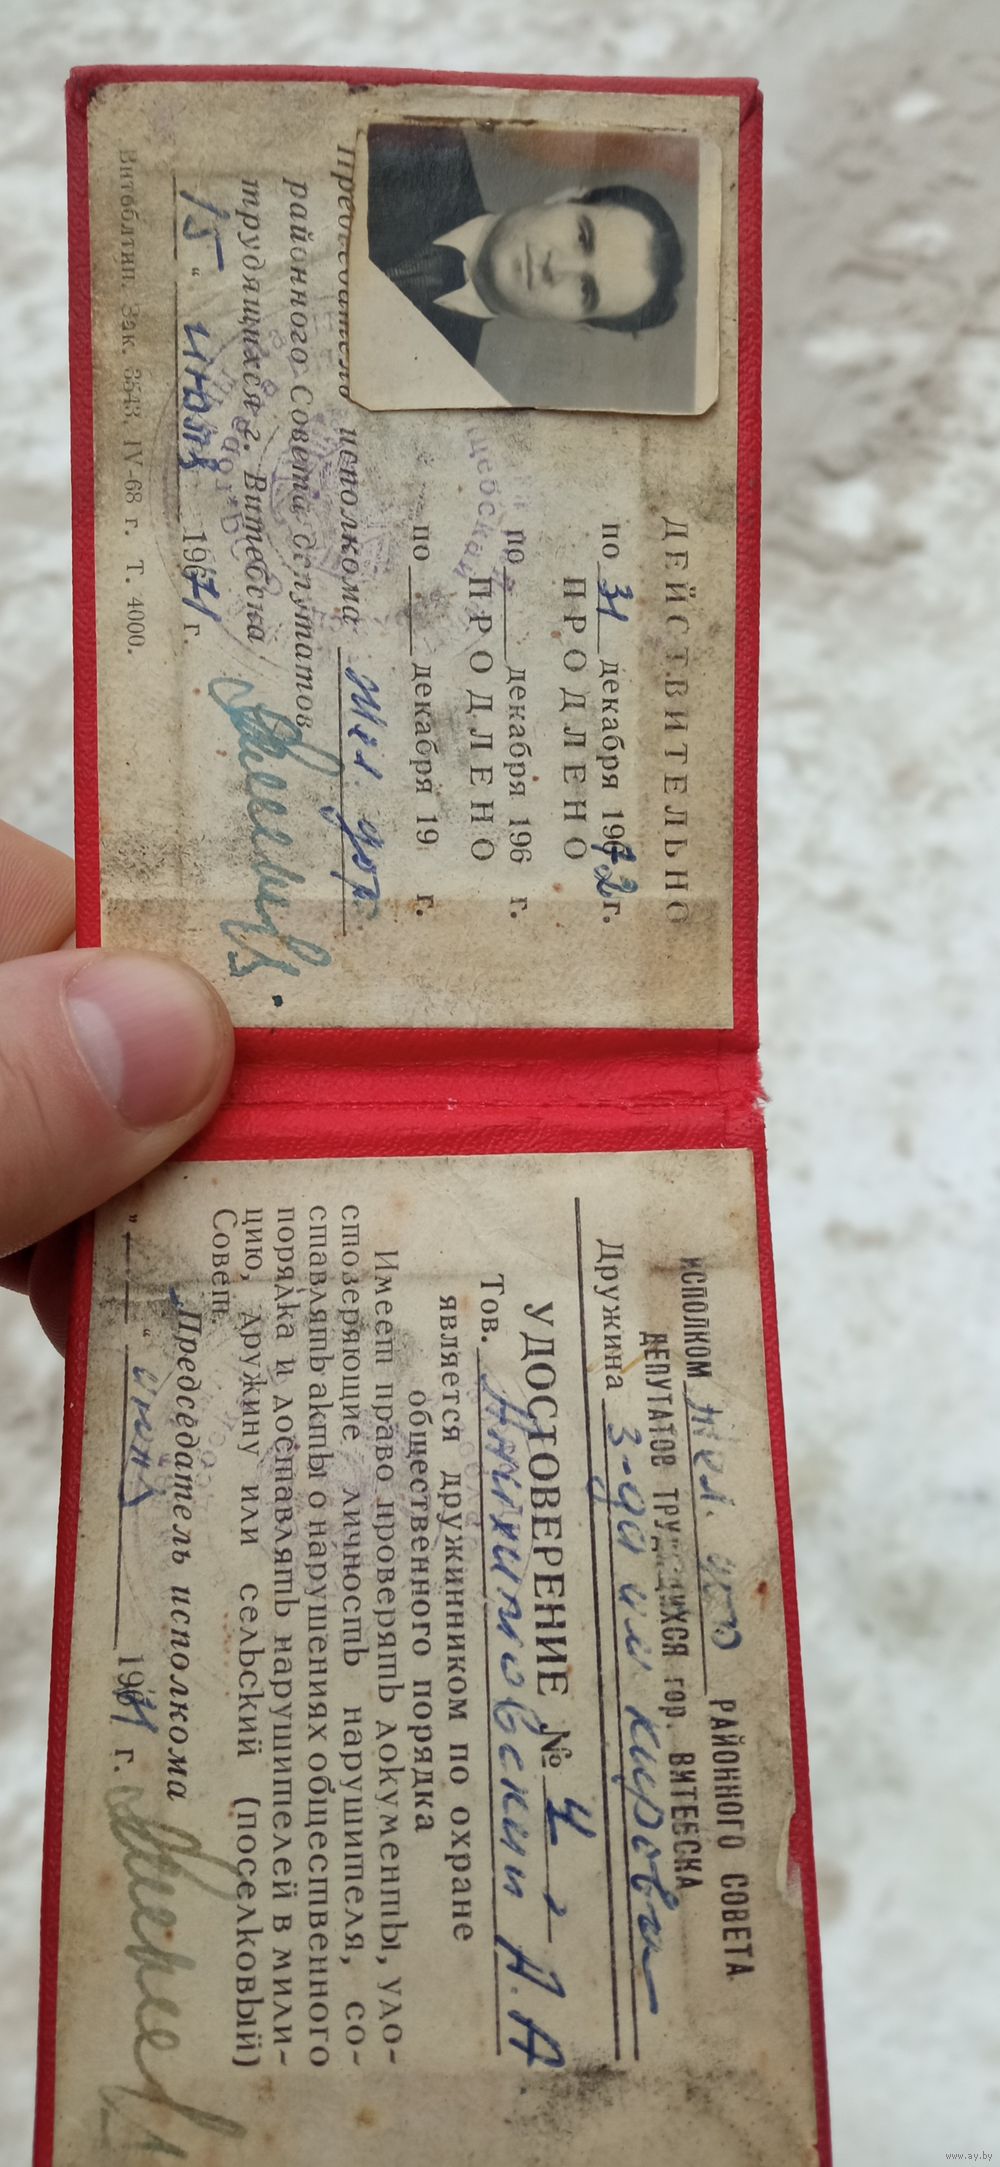 ДЕЙСТВИТЕЛЬНО
по 31 декабря 1972 г.
ПРОДЛЕНО
по декабря 196 г.
ПРОДЛЕНО
по декабря 19 г.
Председатель исполкома Жел. дор.
районного Совета депутатов
трудящихся г. Витебска
15 “ июля 1971 г.
Витоблтип. Зак. 3543. IV-68 г. Т. 4000.
ИСПОЛКОМ Жел. дор РАЙОННОГО СОВЕТА
ДЕПУТАТОВ ТРУДЯЩИХСЯ ГОР. ВИТЕБСКА
Дружина з-да им Кирова
УДОСТОВЕРЕНИЕ №
Тов. А. А.
является дружинником по охране
общественного порядка
Имеет право проверять документы, удо-
стоверяющие личность нарушителя, со-
ставлять акты о нарушениях общественного
порядка и доставлять нарушителей в мили-
цию, дружину или сельский (поселковый)
Совет.
Председатель исполкома
„ “ 1971 г.
www.ay.by